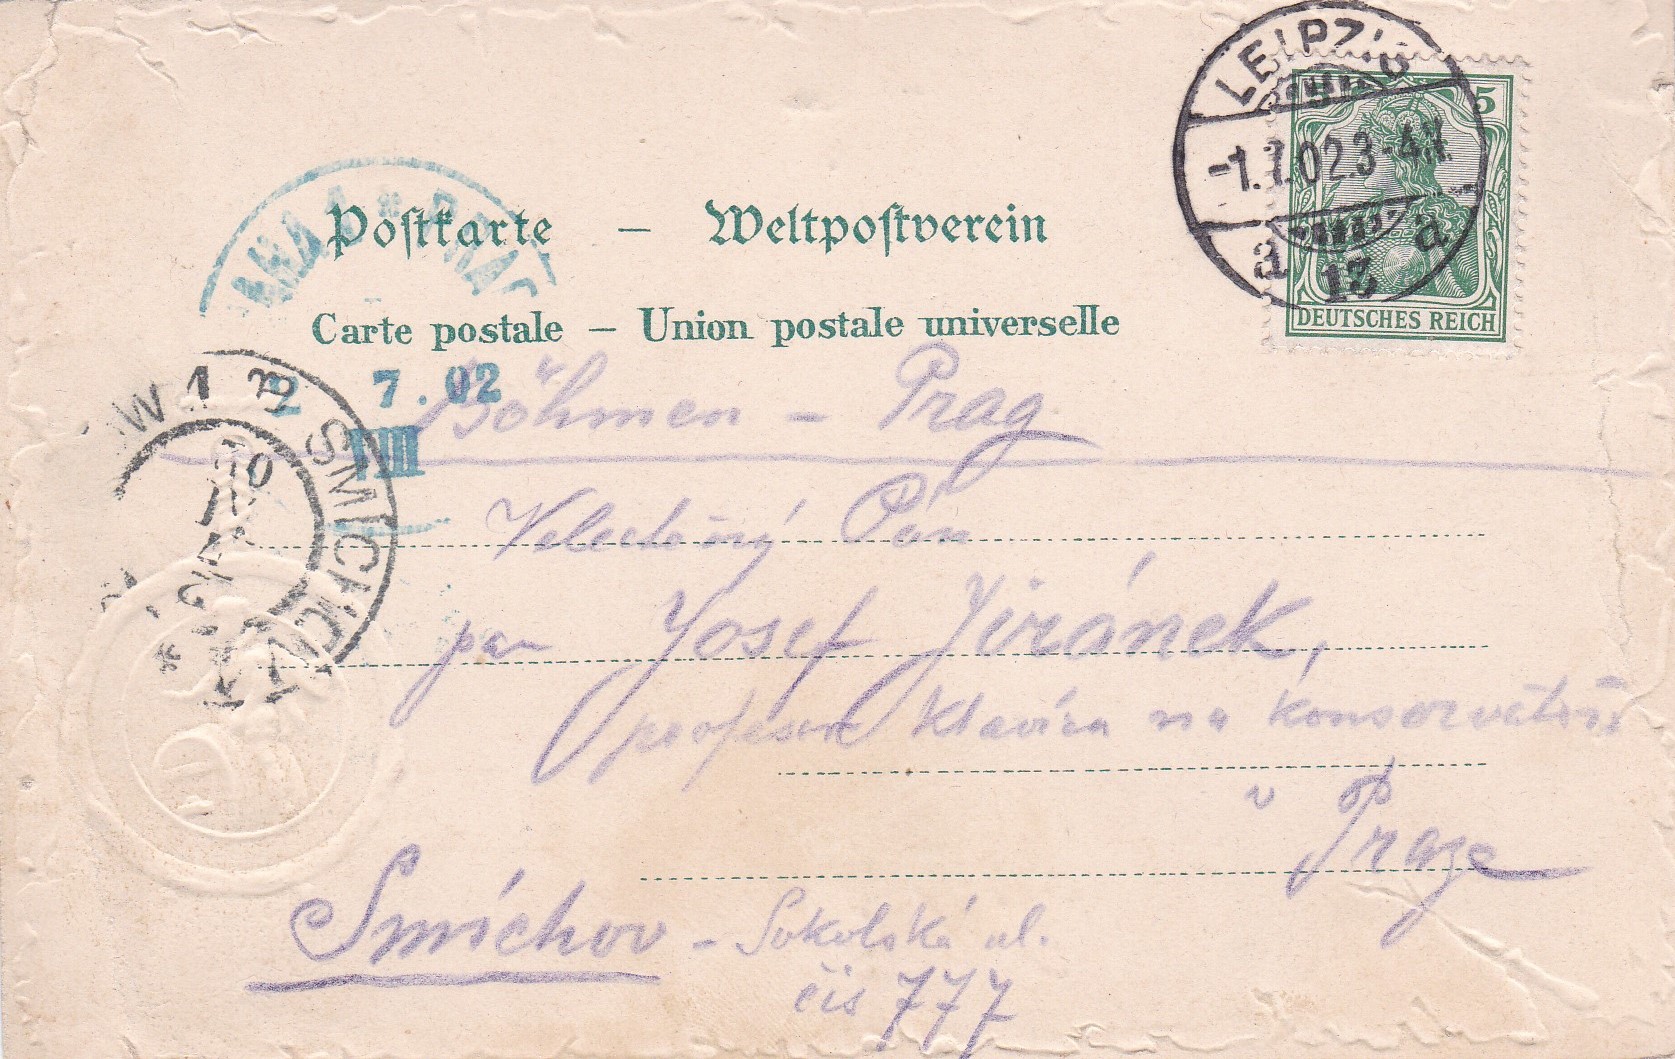 LEIPZIG
-1.7.02.3-4N
a 13 a
5
DEUTSCHES REICH
PRAHA 1 * PRAG
Postkarte — Weltpostverein
Carte postale — Union postale universelle
2 7.02
VIII
SMICHOV 1
Böhmen - Prag
Velectěný Pán
pan Josef Jiránek,
profesor klavíru na konservatoři
v Praze
Smíchov - Sokolská ul.
čís 777